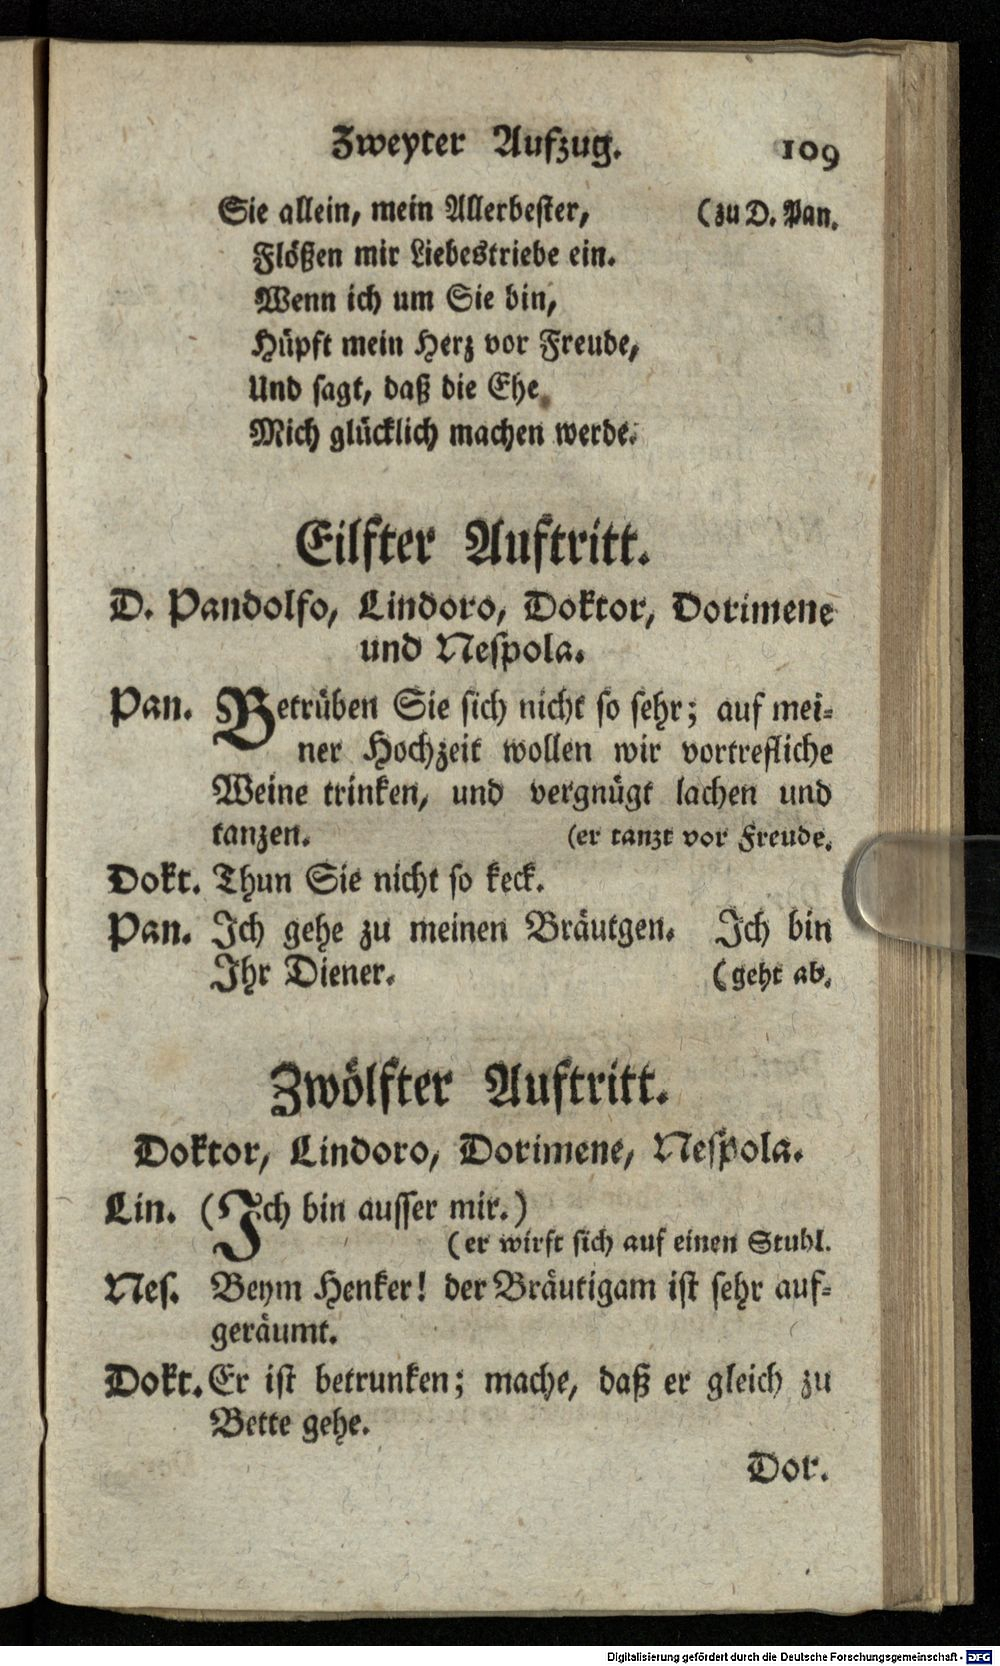 Zweyter Aufzug. 109
Sie allein, mein Allerbester, (zu D. Pan.
Flößen mir Liebestriebe ein.
Wenn ich um Sie bin,
Hüpft mein Herz vor Freude,
Und sagt, daß die Ehe
Mich glücklich machen werde.
Eilfter Auftritt.
D. Pandolfo, Lindoro, Doktor, Dorimene
und Nespola.
Pan. Betrüben Sie sich nicht so sehr; auf mei-
ner Hochzeit wollen wir vortrefliche
Weine trinken, und vergnügt lachen und
tanzen. (er tanzt vor Freude.
Dokt. Thun Sie nicht so keck.
Pan. Ich gehe zu meinen Bräutgen. Ich bin
Ihr Diener. (geht ab.
Zwölfter Auftritt.
Doktor, Lindoro, Dorimene, Nespola.
Lin. (Ich bin ausser mir.)
(er wirft sich auf einen Stuhl.
Nes. Beym Henker! der Bräutigam ist sehr auf-
geräumt.
Dokt. Er ist betrunken; mache, daß er gleich zu
Bette gehe.
Dor.
Digitalisierung gefördert durch die Deutsche Forschungsgemeinschaft - DFG